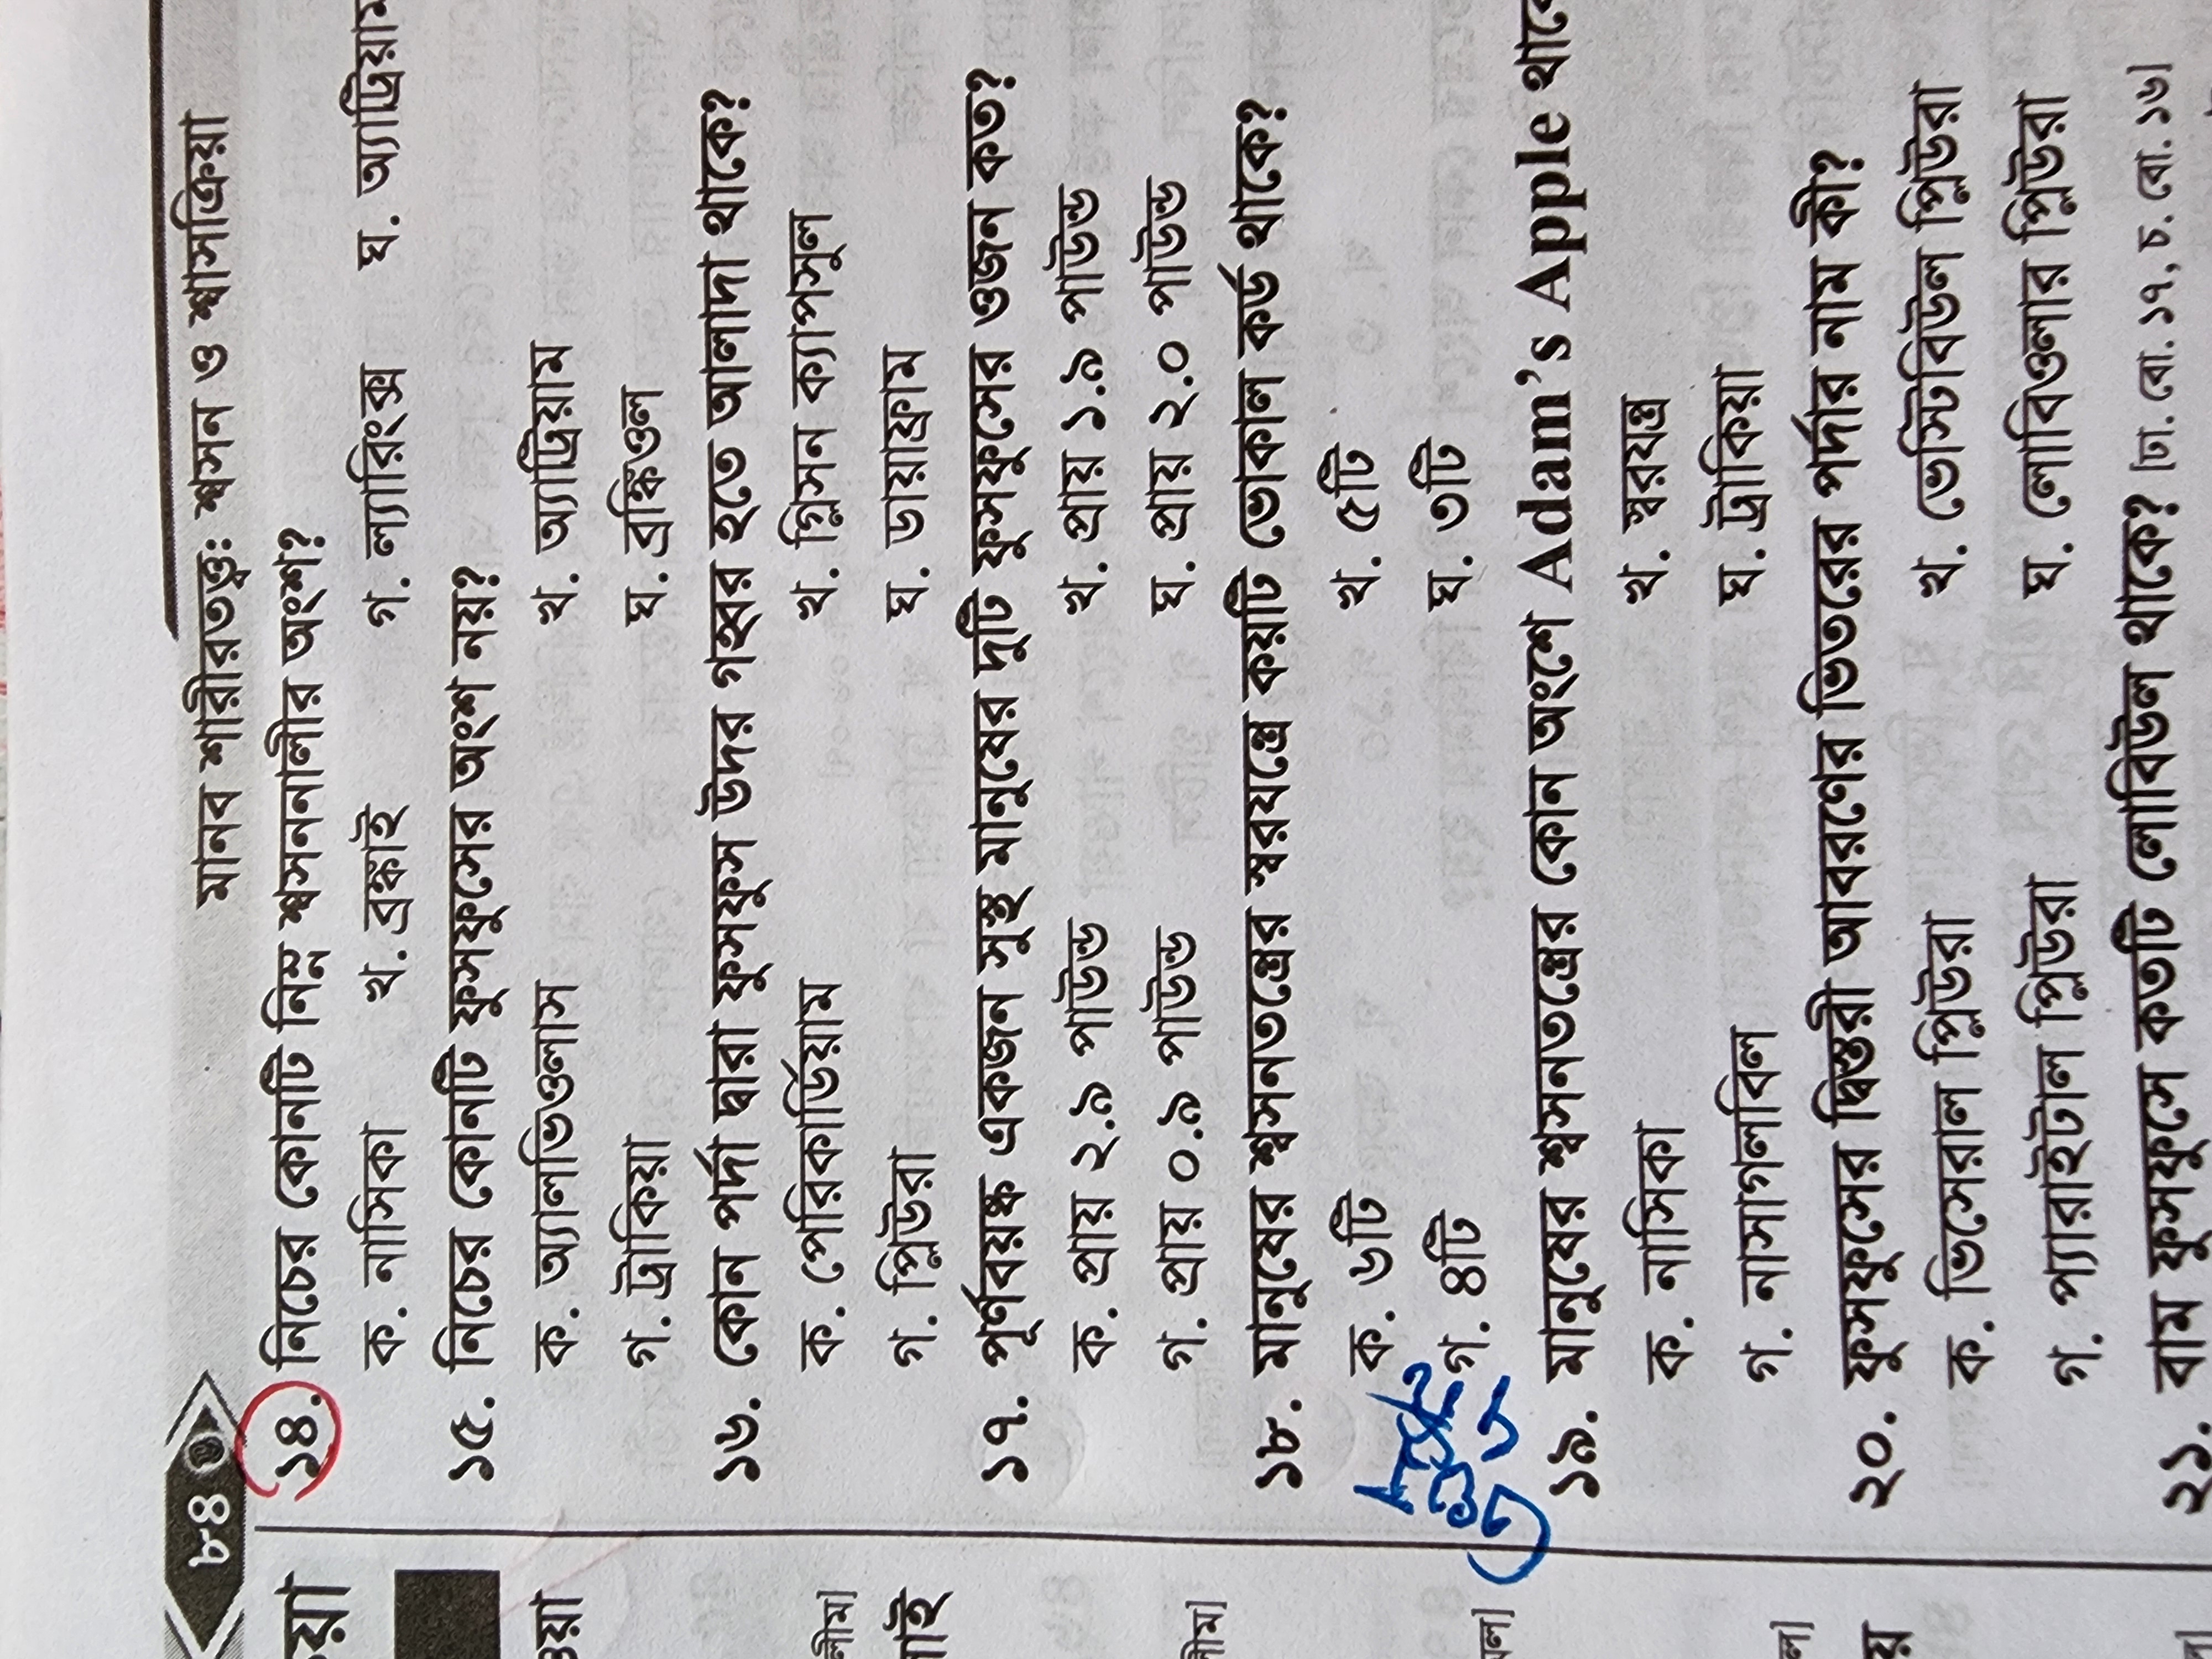 ৮৪
মানব শারীরতত্ত্ব: শ্বসন ও শ্বাসক্রিয়া
১৪. নিচের কোনটি নিম্ন শ্বসননালীর অংশ?
ক. নাসিকা খ. ব্রঙ্কাই গ. ল্যারিংক্স ঘ. অ্যাট্রিয়াম
১৫. নিচের কোনটি ফুসফুসের অংশ নয়?
ক. অ্যালভিওলাস খ. অ্যাট্রিয়াম
গ. ট্রাকিয়া ঘ. ব্রঙ্কিওল
১৬. কোন পর্দা দ্বারা ফুসফুস উদর গহ্বর হতে আলাদা থাকে?
ক. পেরিকার্ডিয়াম খ. গ্লিসন ক্যাপসুল
গ. প্লিউরা ঘ. ডায়াফ্রাম
১৭. পূর্ণবয়স্ক একজন সুস্থ মানুষের দুটি ফুসফুসের ওজন কত?
ক. প্রায় ২.৯ পাউন্ড খ. প্রায় ১.৯ পাউন্ড
গ. প্রায় ০.৯ পাউন্ড ঘ. প্রায় ২.০ পাউন্ড
১৮. মানুষের শ্বসনতন্ত্রের স্বরযন্ত্রে কয়টি ভোকাল কর্ড থাকে?
ক. ৬টি খ. ৫টি
গ. ৪টি ঘ. ৩টি
১৯. মানুষের শ্বসনতন্ত্রের কোন অংশে Adam's Apple
ক. নাসিকা খ. স্বরযন্ত্র
গ. নাসাগলবিল ঘ. ট্রাকিয়া
২০. ফুসফুসের দ্বিস্তরী আবরণের ভিতরের পর্দার নাম কী?
ক. ভিসেরাল প্লিউরা খ. ভেস্টিবিউল প্লিউরা
গ. প্যারাইটাল প্লিউরা ঘ. লোবিওলার প্লিউরা
২১. বাম ফুসফুসে কতটি লোবিউল থাকে? [ঢা. বো. ১৭, চ. বো. ১৬]